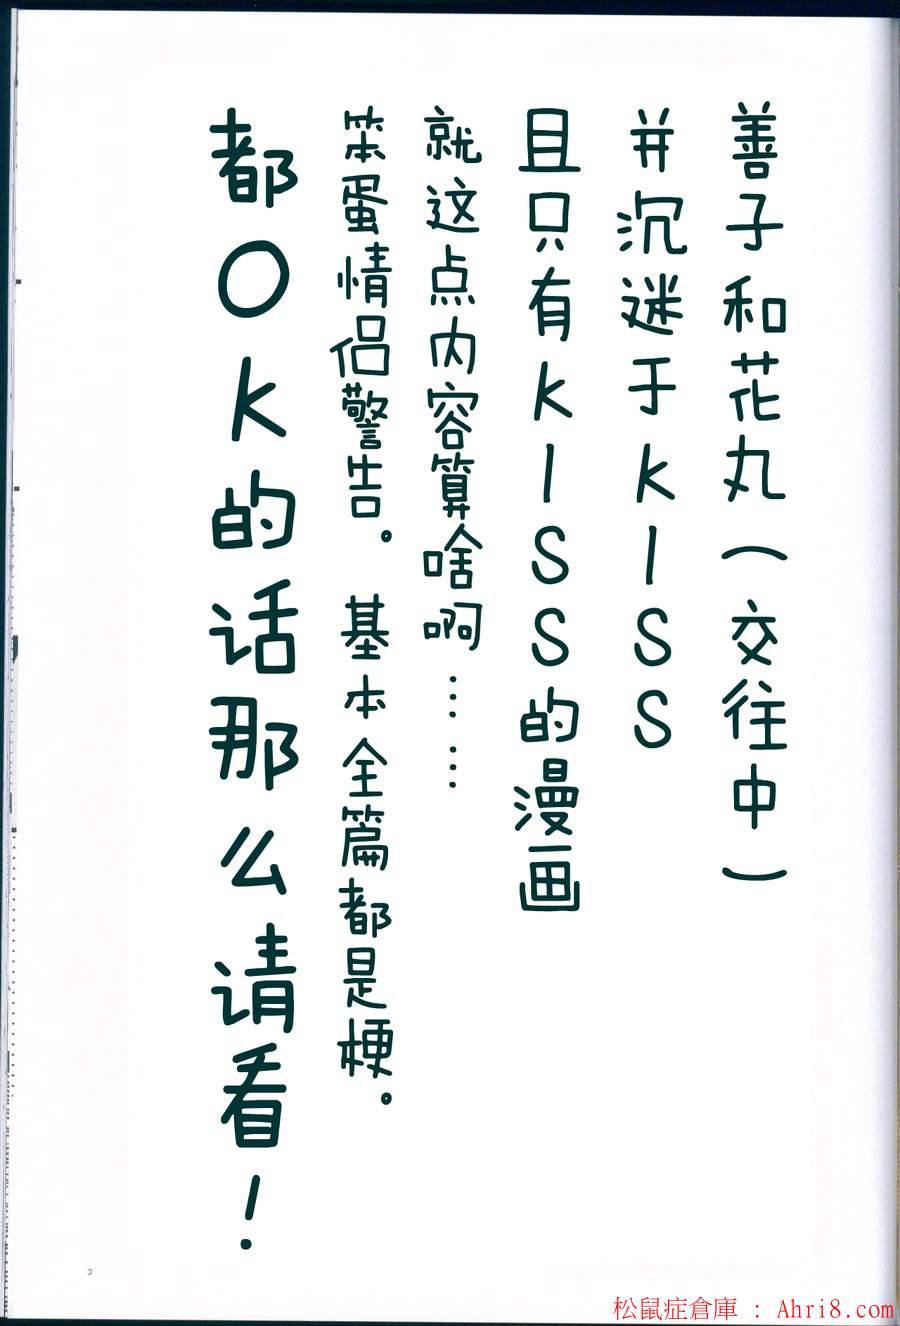 善子和花丸（交往中）
并沉迷于KISS
且只有KISS的漫画
就这点内容算啥啊……
笨蛋情侣警告。 基本全篇都是梗。
都OK的话那么请看！
3
松鼠症倉庫 : Ahri8.com